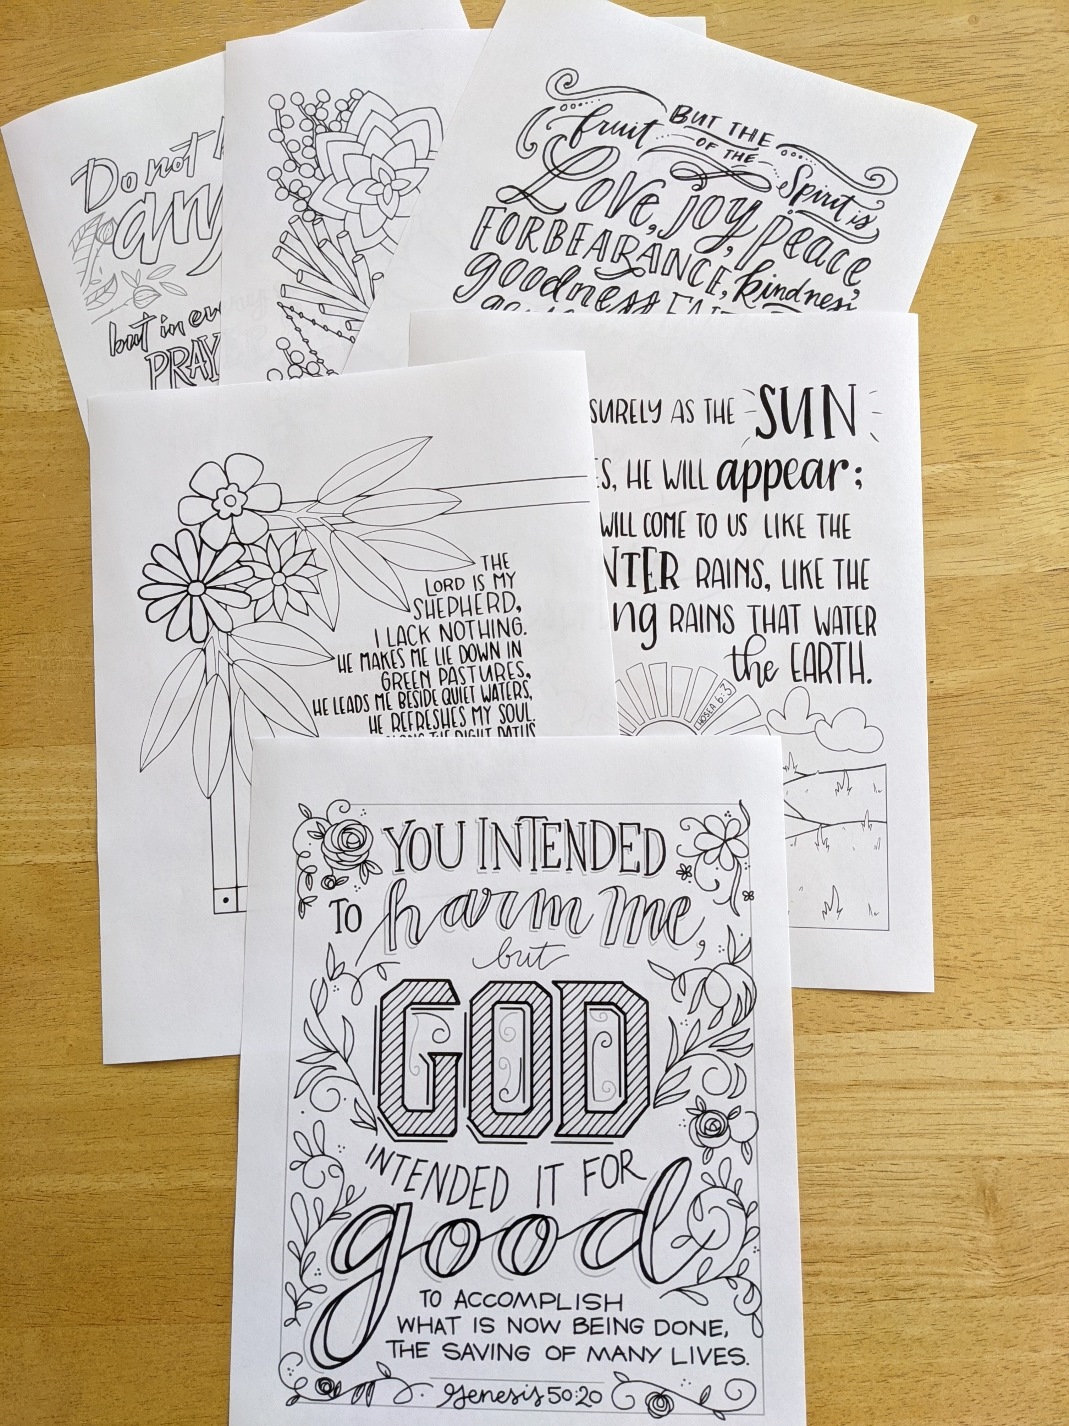 Do not
but in
PRAY
BUT THE
fruit OF THE Spirit is
Love, joy, peace,
FORBEARANCE, kindness,
goodness
SURELY AS THE SUN
HE WILL appear;
WILL COME TO US LIKE THE
RAINS, LIKE THE
RAINS THAT WATER
the EARTH.
HOSEA 6:3
THE
LORD IS MY
SHEPHERD,
I LACK NOTHING.
HE MAKES ME LIE DOWN IN
GREEN PASTURES,
HE LEADS ME BESIDE QUIET WATERS,
HE REFRESHES MY SOUL.
THE RIGHT PATHS
YOU INTENDED
TO harm me,
but
GOD
INTENDED IT FOR
good
TO ACCOMPLISH
WHAT IS NOW BEING DONE,
THE SAVING OF MANY LIVES.
Genesis 50:20